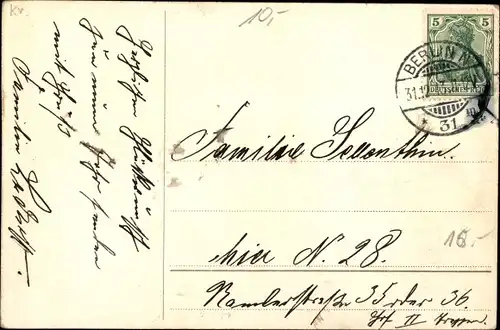 10,-
Herzlichen Glückwunsch
zum neuen Jahr senden
mit Gruß
Familie
5 5
DEUTSCHES REICH
BERLIN N.
31.12
* 31 *
Familie Sellenthin.
hier N. 28.
Ramlerstraße 35 oder 36
II Treppen.
10.-